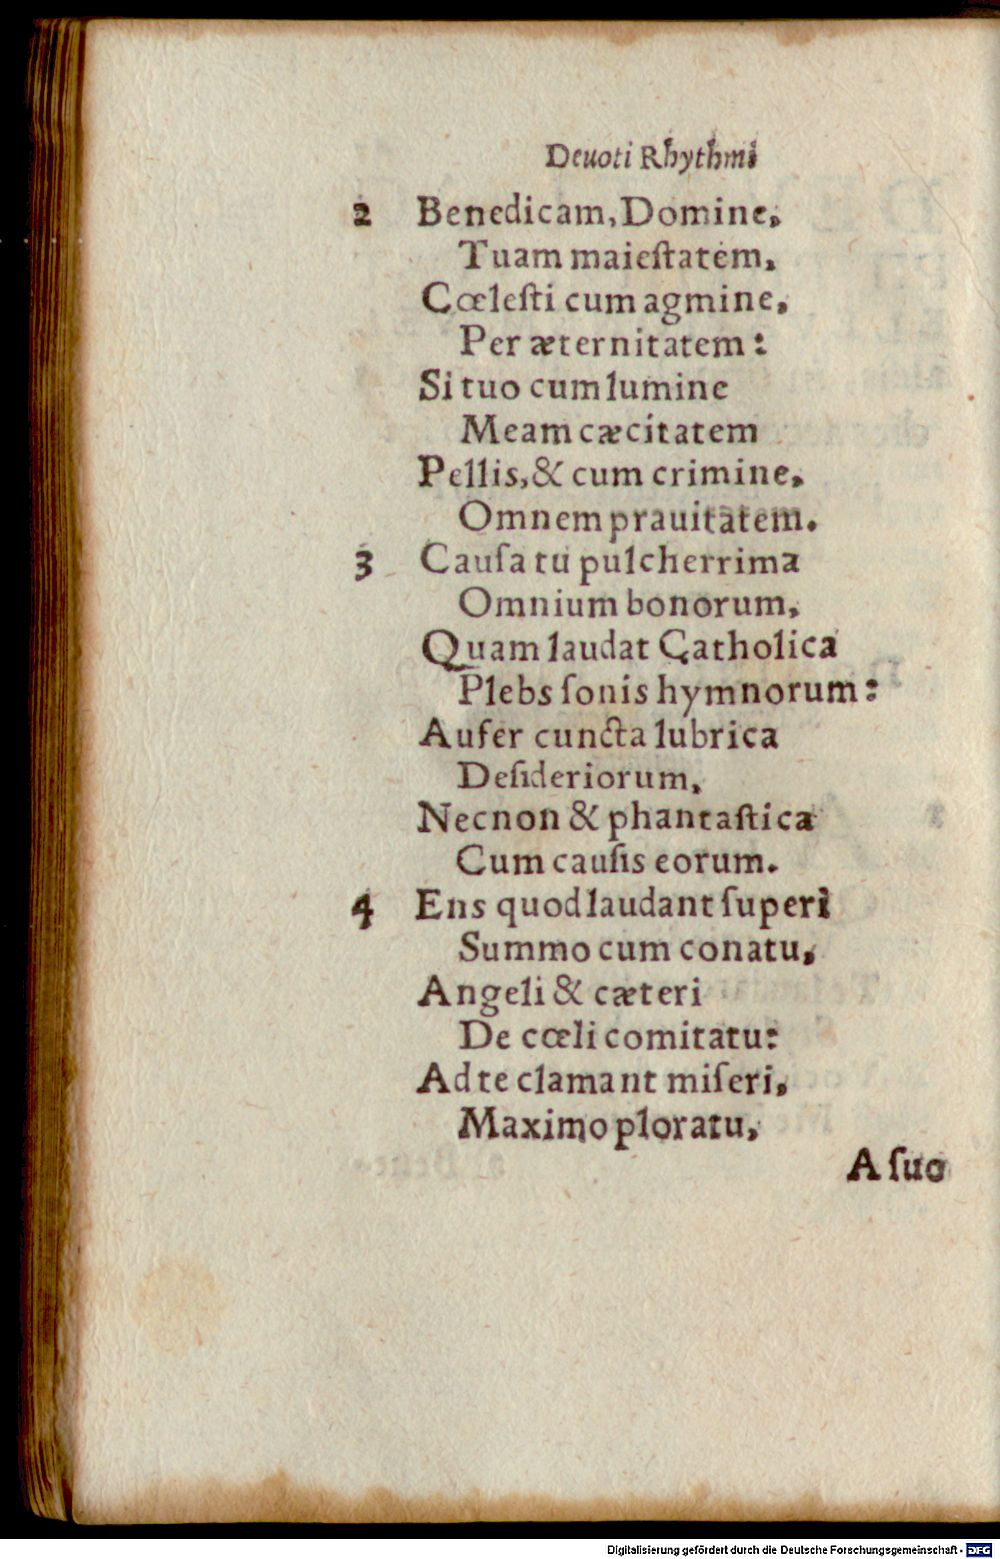 Deuoti Rhythmi
2 Benedicam, Domine,
Tuam maieſtatem,
Cœleſti cum agmine,
Per æternitatem:
Si tuo cum lumine
Meam cæcitatem
Pellis, & cum crimine,
Omnem prauitatem.
3 Cauſa tu pulcherrima
Omnium bonorum,
Quam laudat Catholica
Plebs ſonis hymnorum:
Aufer cuncta lubrica
Deſideriorum,
Necnon & phantaſtica
Cum cauſis eorum.
4 Ens quod laudant ſuperi
Summo cum conatu,
Angeli & cæteri
De cœli comitatu:
Ad te clamant miſeri,
Maximo ploratu,
A ſuo
Digitalisierung gefördert durch die Deutsche Forschungsgemeinschaft - DFG